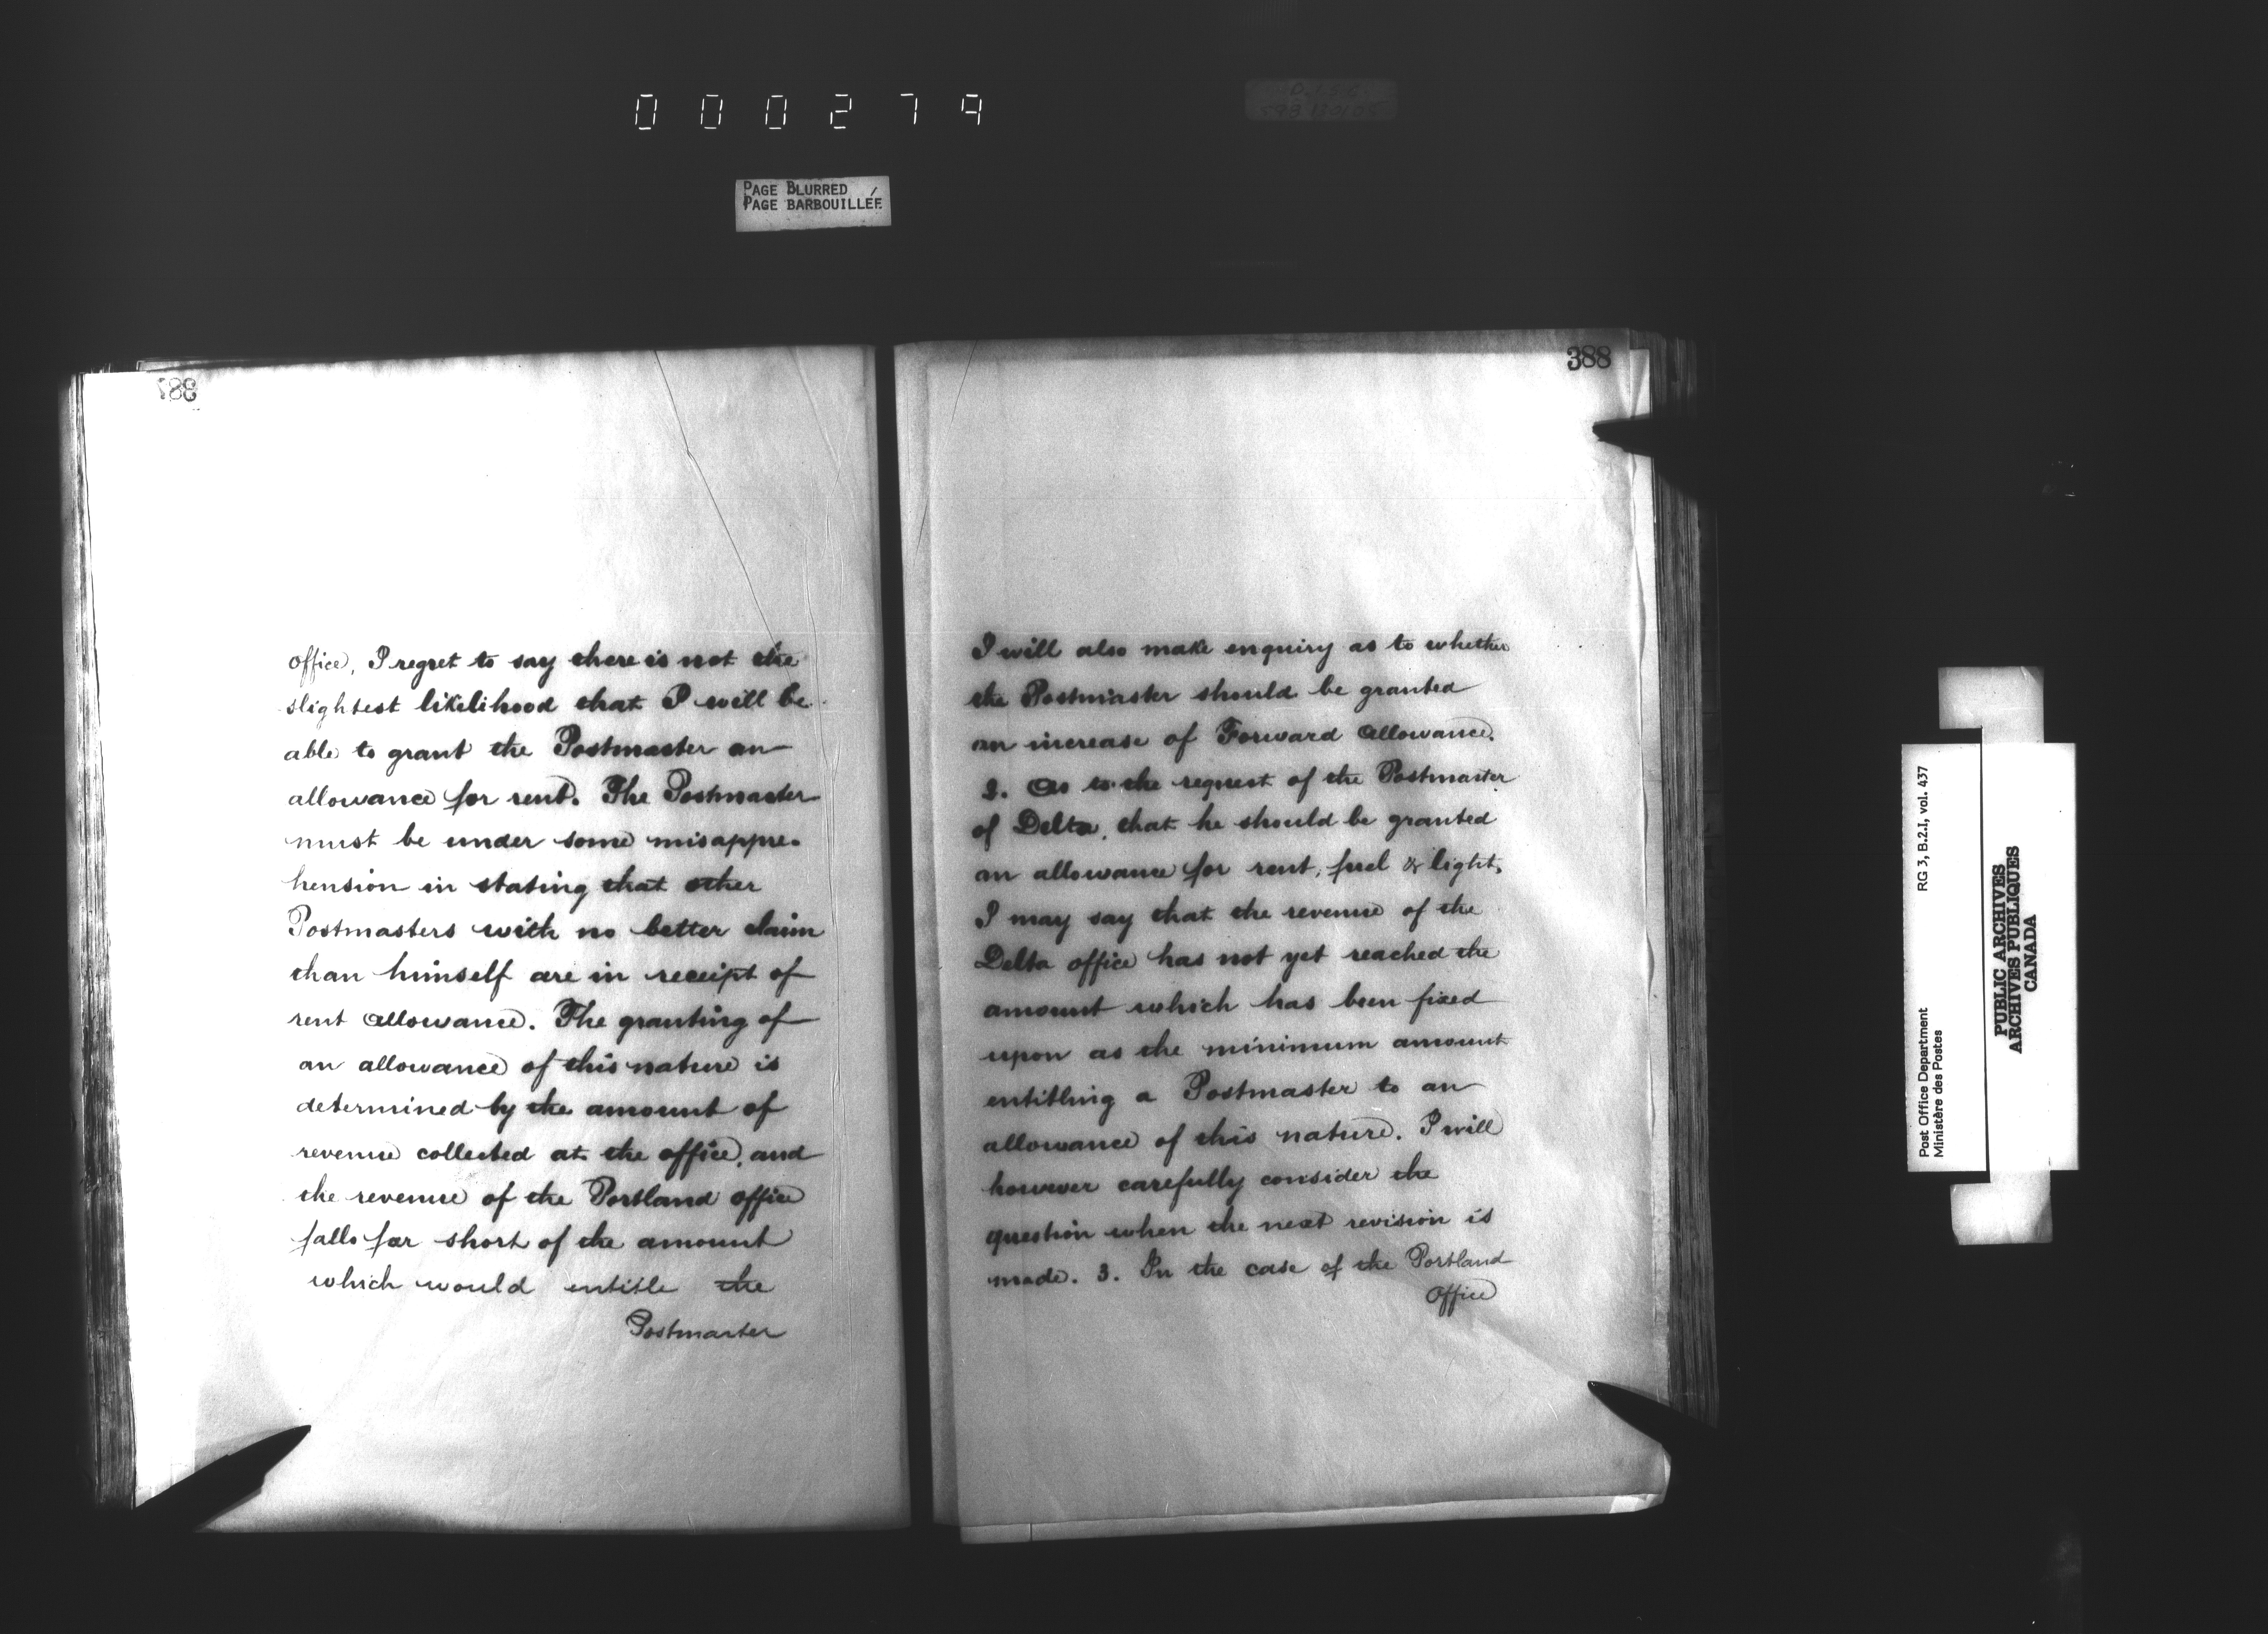 000279
PAGE BLURRED
PAGE BARBOUILLÉE
388
office, I regret to say there is not the
slightest likelihood that I will be
able to grant the Postmaster an
allowance for rent. The Postmaster
must be under some misappre-
hension in stating that other
Postmasters with no better claim
than himself are in receipt of
rent allowance. The granting of
an allowance of this nature is
determined by the amount of
revenue collected at the office, and
the revenue of the Portland office
falls far short of the amount
which would entitle the
Postmaster
I will also make enquiry as to whether
the Postmaster should be granted
an increase of Forward Allowance.
2. As to the request of the Postmaster
of Delta, that he should be granted
an allowance for rent, fuel & light,
I may say that the revenue of the
Delta office has not yet reached the
amount which has been fixed
upon as the minimum amount
entitling a Postmaster to an
allowance of this nature. I will
however carefully consider the
question when the next revision is
made. 3. In the case of the Portland
Office
Post Office Department
Ministère des Postes
RG 3, B.2.I, vol. 437
PUBLIC ARCHIVES
ARCHIVES PUBLIQUES
CANADA